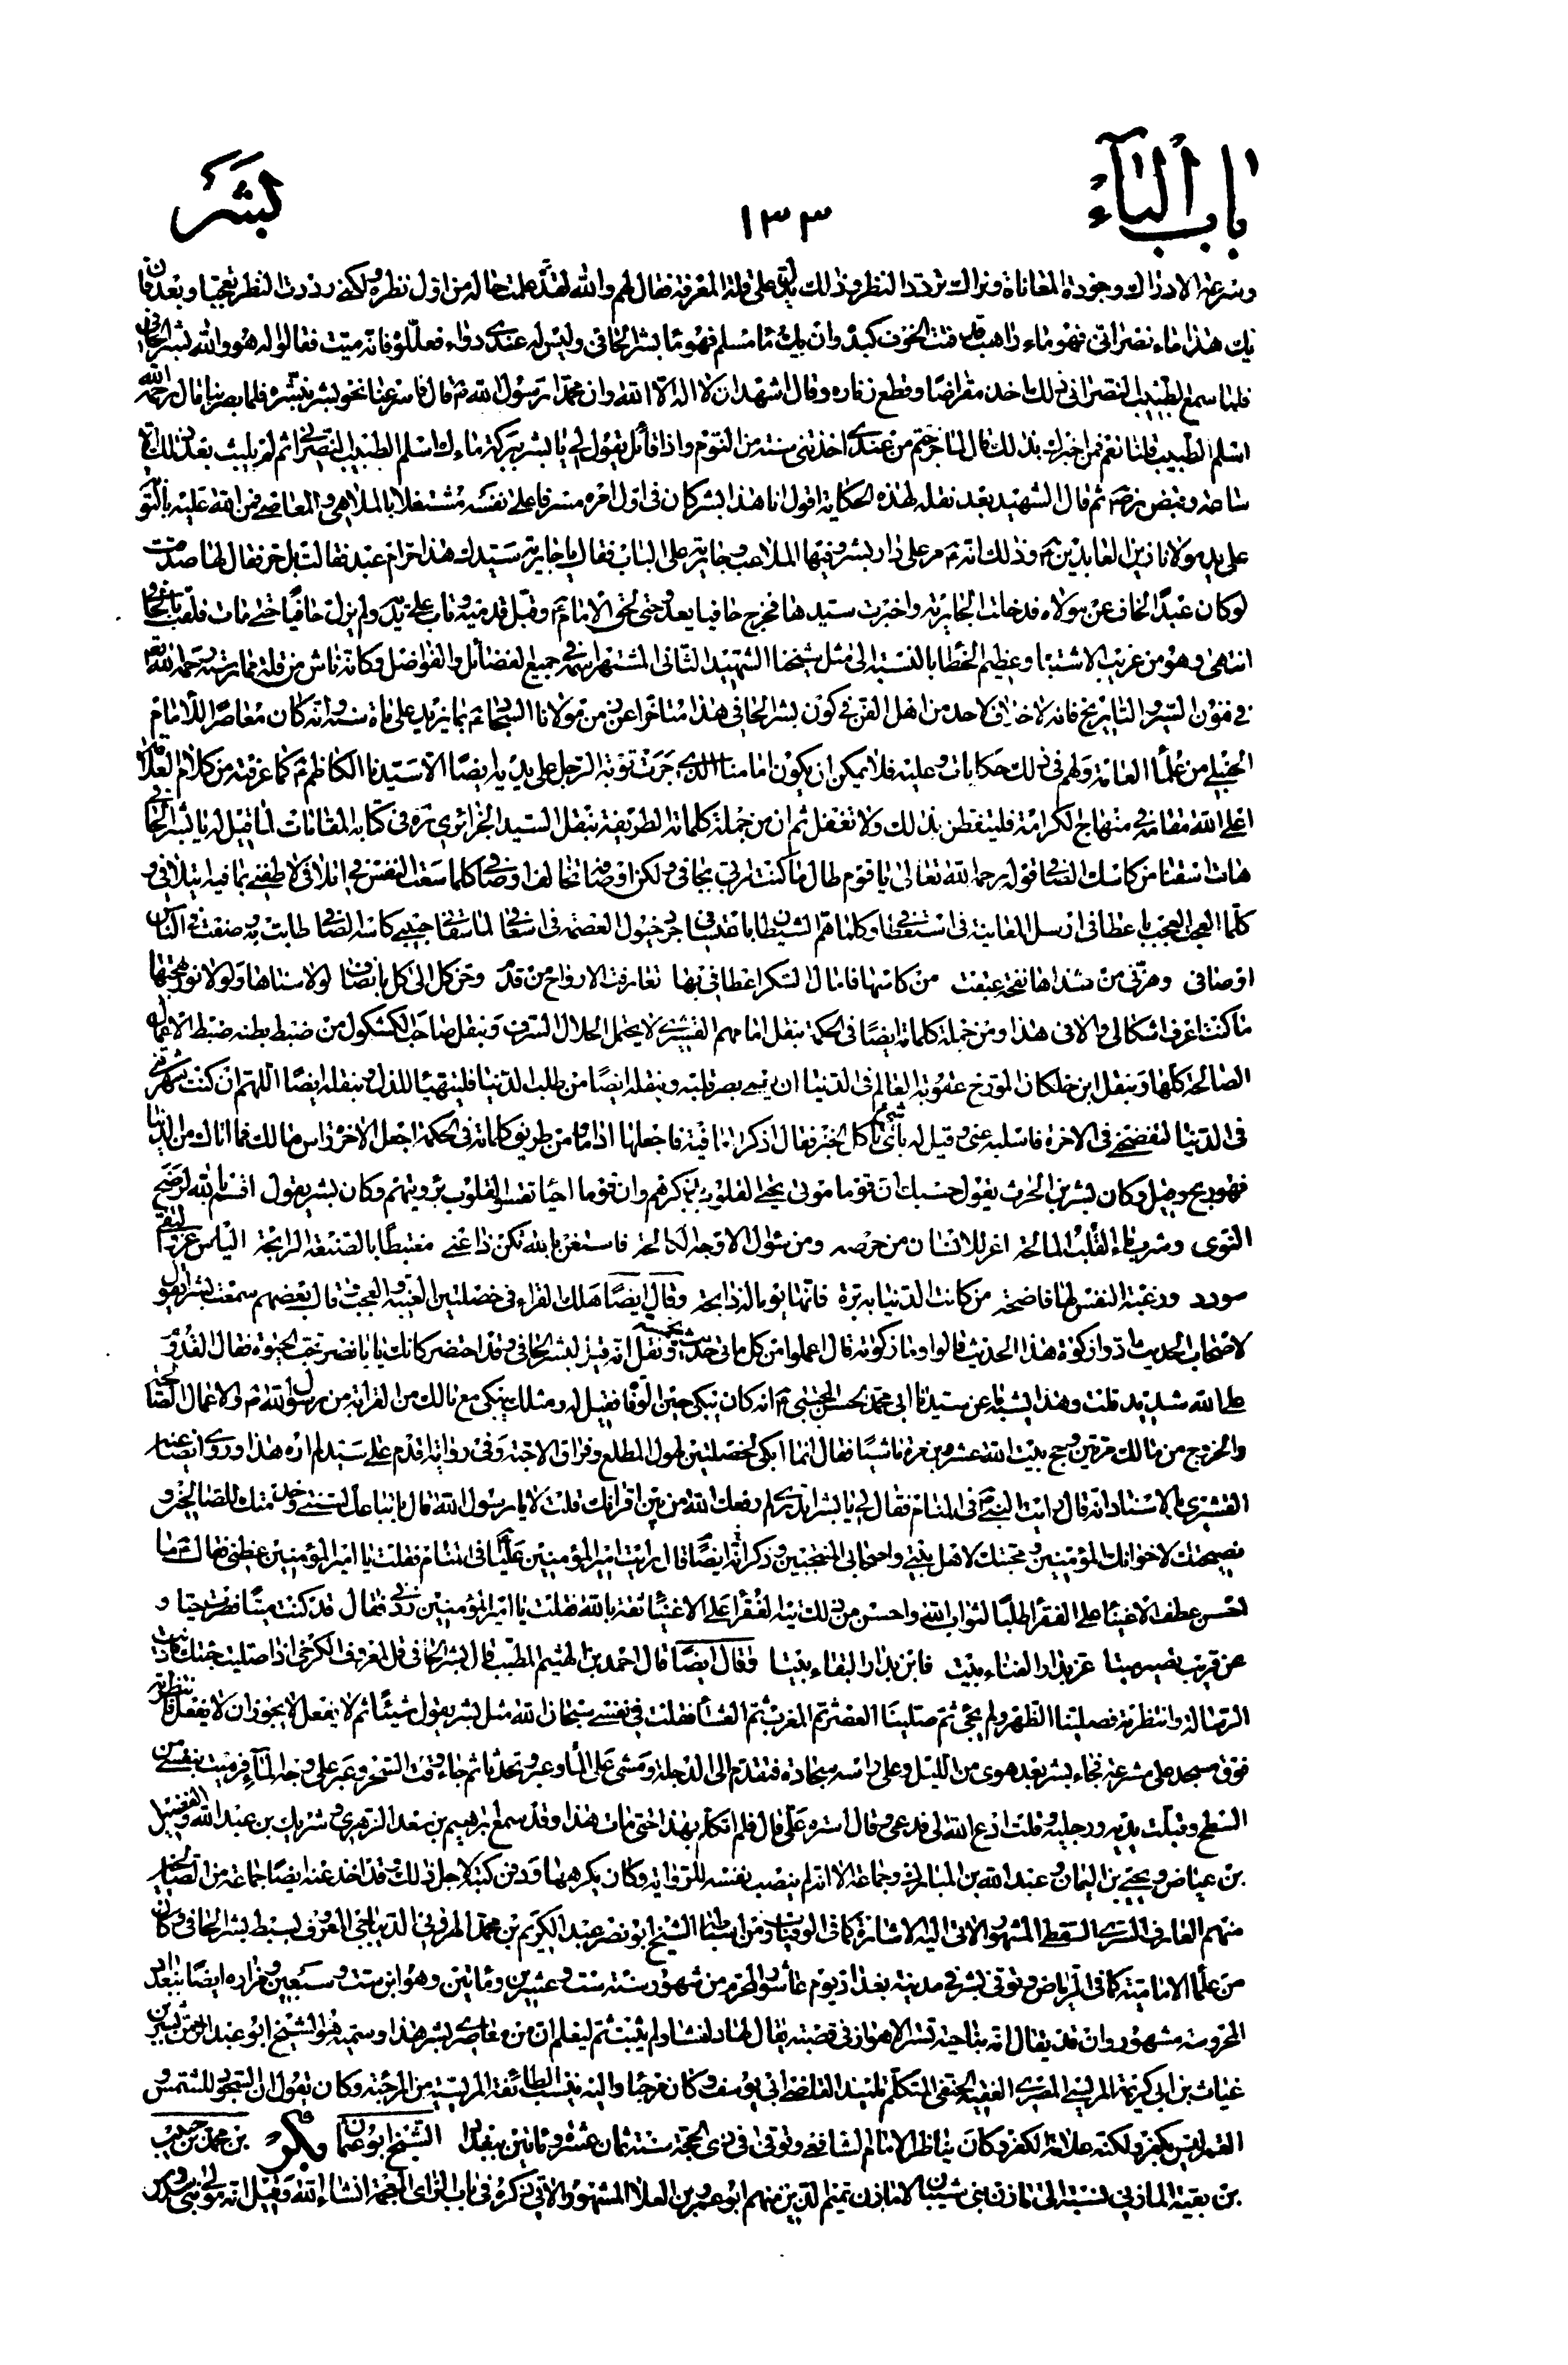 باب الباء
١٣٣
بشر
وسرعة الادراك وجودة المعاناة ونراك تردد النظر وذلك يدل على قلة المعرفة فقال لهم والله لقد علمت حاله من اول نظرة ولكنى رددت النظر تعجبا وبعد فان
يك هذا ماء نصرانى فهو ماء راهب قد فتت الخوف كبده وان يك ماء مسلم فهو ماء بشر الحافى وليس له عندى دواء فعللوه فانه ميت فقالوا له هو والله بشر الحافى
فلما سمع الطبيب النصرانى ذلك اخذ مقراضا وقطع زناره وقال اشهد ان لا اله الا الله وان محمدا رسول الله ص قال فاسرعنا نحو بشر نبشره فلما بصر بنا قال رحمه الله
اسلم الطبيب قلنا نعم فمن اخبرك بذلك قال لما خرجتم من عندى اخذتنى سنة من النوم واذا قائل يقول لى يا بشر ببركة ماءك اسلم الطبيب النصرانى ثم لم يلبث بعد ذلك الا
ساعة وقبض ثم قال الشهيد بعد نقله لهذه الحكاية اقول انا هذا بشر كان فى اول امره مسرفا على نفسه مشتغلا بالملاهى والمعاصى فمن الله عليه بالتوبة
على يد مولانا زين العابدين ع وذلك انه ع مر على دار بشر وفيها الملاعب وجارية على الباب فقال يا جارية سيدك هذا حر ام عبد فقالت بل حر فقال لها صدقت
لو كان عبدا لخاف عن مولاه فدخلت الجارية واخبرت سيدها فخرج حافيا يعدو حتى لحق الامام ع وقبل قدميه وتاب على يديه ولم يزل حافيا حتى مات فلقب بالحافى
انتهى وهو من غريب الاشتباه وعظيم الخطا بالنسبة الى مثل شيخنا الشهيد الثانى المشتهر اسمه فى جميع الفضائل والفواضل وكانه ناش من قلة ممارسته رحمه الله
فى فنون السير والتاريخ فانه لا خلاف لاحد من اهل الفن فى كون بشر الحافى هذا متاخرا عن زمن مولانا السجاد ع بما يزيد على مائة سنة وانه كان معاصرا للامام
الحنبلى من علماء العامة ولهم فى ذلك حكايات وعليه فلا يمكن ان يكون امامنا الذى جرت توبة الرجل على يديه ايضا الا سيدنا الكاظم ع كما عرفته من كلام العلامة
اعلى الله مقامه فى منهاج الكرامة فليتفطن بذلك ولا تغفل ثم ان من جملة كلماته الطريفة بنقل السيد الجزائرى ره فى كتابه المقامات لما قيل له يا بشر الحافى
هات اسقنا من كاسك الصافى قوله رحمه الله تعالى يا قوم طال ما كنت لربى بجافى ولكن
كلما العجب العجب يا عطافى ارسل العناية فى وكلما هم الشيطان جر خيول العصمة فى لما سقانى حبيبى كاسه الصافى طابت
اوصافى وهزنى من شذاها نفحة عبقت من كاسها فامال السكر اعطافى بها تعارفت الارواح من قدم وحن كل الى كل بانصاف لولا سناها ولولا نور بهجتها
ما كنت اعرف اشكالى والافى هذا ومن جملة كلماته ايضا فى الحكمة بنقل امامهم القشيرى لا يحتمل الحلال السرف وبنقل صاحب الكشكول من ضبط بطنه ضبط الاعمال
الصالحة كلها وبنقل ابن خلكان المورخ عقوبة العالم فى الدنيا ان يعمى بصر قلبه وبنقله ايضا من طلب الدنيا فليتهيا للذل وبنقله ايضا اللهم ان كنت شهرتنى
فى الدنيا لتفضحنى فى الاخرة فاسلبه عنى وقيل له باى شىء تاكل الخبز فقال اذكر العافية فاجعلها اداما ومن طريف كلماته فى الحكمة اجعل الاخرة راس مالك فما اتاك من الدنيا
فهو ربح وقيل وكان بشر بن الحرث يقول حسبك ان قوما موتى يحيى القلوب بذكرهم وان قوما احياء تقسو القلوب برؤيتهم وكان بشر يقول اقسم بالله لرضخ
النوى وشرب ماء القلب المالحة اعز للانسان من حرصه ومن سؤال الاوجه الكالحة فاستغن بالله تكن ذا غنى مغتبطا بالصفقة الرابحة الياس عز والتقى
سودد ورغبة النفس لها فاضحة من كانت الدنيا به برة فانها يوما له ذابحة وقال ايضا هلك القراء فى خصلتين الغيبة والعجب قال بعضهم سمعت بشرا يقول
لاصحاب الحديث ادوا زكوة هذا الحديث قالوا وما زكوته قال اعملوا من كل مائتى حديث بخمسة ونقل انه قيل لبشر الحافى وقد احتضر كانك يا ابا نصر تحب الحيوة فقال القدوم
على الله شديد قلت وهذا يشبه ما عن سيدنا ابى محمد الحسن المجتبى ع انه كان يبكى حين الوفاة فقيل له ومثلك يبكى مع مالك من القرابة من رسول الله ص والاعمال الصالحة
والخروج من مالك مرتين وحج بيت الله عشرين مرة ماشيا فقال انما ابكى لخصلتين لهول المطلع وفراق الاحبة وفى رواية اقدم على سيد لم اره هذا وروى ايضا عنه
القشيرى بالاسناد انه قال رايت النبى ص فى المنام فقال لى يا بشر اتدرى لم رفعك الله من بين اقرانك قلت لا يا رسول الله قال باتباعك لسنتى وخدمتك للصالحين و
نصيحتك لاخوانك المؤمنين ومحبتك لاهل بيتى واصحابى المنتجبين وذكر انه ايضا قال رايت امير المؤمنين عليا فى المنام فقلت يا امير المؤمنين عظنى فقال ع ما
احسن عطف الاغنياء على الفقراء طلبا لثواب الله واحسن من ذلك تيه الفقراء على الاغنياء ثقة بالله فقلت يا امير المؤمنين زدنى فقال قد كنت ميتا فصرت حيا و
عن قريب تصير ميتا عز بدار الفناء بيت فابن بدار البقاء بيتا وقال ايضا قال احمد بن الهيثم المطيب قال بشر الحافى قل لمعروف الكرخى اذا صليت جئتك
الرسالة وانتظرته فصلينا الظهر ولم يجئ ثم صلينا العصر ثم المغرب ثم العشاء فقلت فى نفسى سبحان الله مثل بشر يقول شيئا ثم لا يفعل لا يجوز ان لا يفعل فانتظرته
فوق مسجد على مشرعة فجاء بشر بعد هوى من الليل وعلى راسه سجادة فتقدم الى الدجلة ومشى على الماء وعبر وتحدثا ثم جاء وقت السحر وعبر على وجه الماء فرميت بنفسى من
السطح وقبلت يديه ورجليه وقلت ادع الله لى فدعى وقال استره على قال فلم اتكلم بهذا حتى مات هذا وقد سمع ابرهيم بن سعد الزهرى وشريك بن عبد الله والفضيل
بن عياض ويحيى بن اليمان وعبد الله بن المبارك وجماعة الا انه لم ينصب نفسه للرواية وكان يكرهها ودفن كتبه لاجل ذلك وقد اخذ عنه ايضا جماعة من الصالحين
منهم العارف السرى السقطى المشهور الاتى اليه الاشارة كما فى الوفيات ومن اسباطه الشيخ ابو نصر عبد الكريم بن محمد الهرونى الديباجى المعروف بسبط بشر الحافى وكان
من علماء الامامية كما فى الرياض وتوفى بشر فى مدينة بغداد يوم عاشورا المحرم من شهور سنة ست وعشرين ومائتين وهو ابن ست وسبعين ومزاره ايضا ببغداد
المحروسة مشهور وان قد يقال انه بناحية تستر الاهواز فى قصبة يقال لها ولم يثبت ثم ليعلم ان من معاصرى بشر هذا وسميه هو الشيخ ابو عبد الرحمن بشر بن
غياث بن ابى كريمة المريسى المصرى الفقيه الحنفى المتكلم تلميذ القاضى ابى يوسف وكان مرجئا واليه ينسب الطائفة المريسية من المرجئة وكان يقول ان السجود للشمس و
القمر ليس بكفر ولكنه علامة الكفر وكان يناظر الامام الشافعى وتوفى فى ذى الحجة سنة ثمان عشرة ومائتين ببغداد الشيخ ابو عثمان بكر بن محمد بن حبيب
بن بقية المازنى نسبة الى مازن بنى شيبان لا مازن تميم الذين منهم ابو عمرو بن العلاء المشهور الاتى ذكره فى باب الزاى المعجمة انشاء الله وقيل انه مولى بنى سدوس